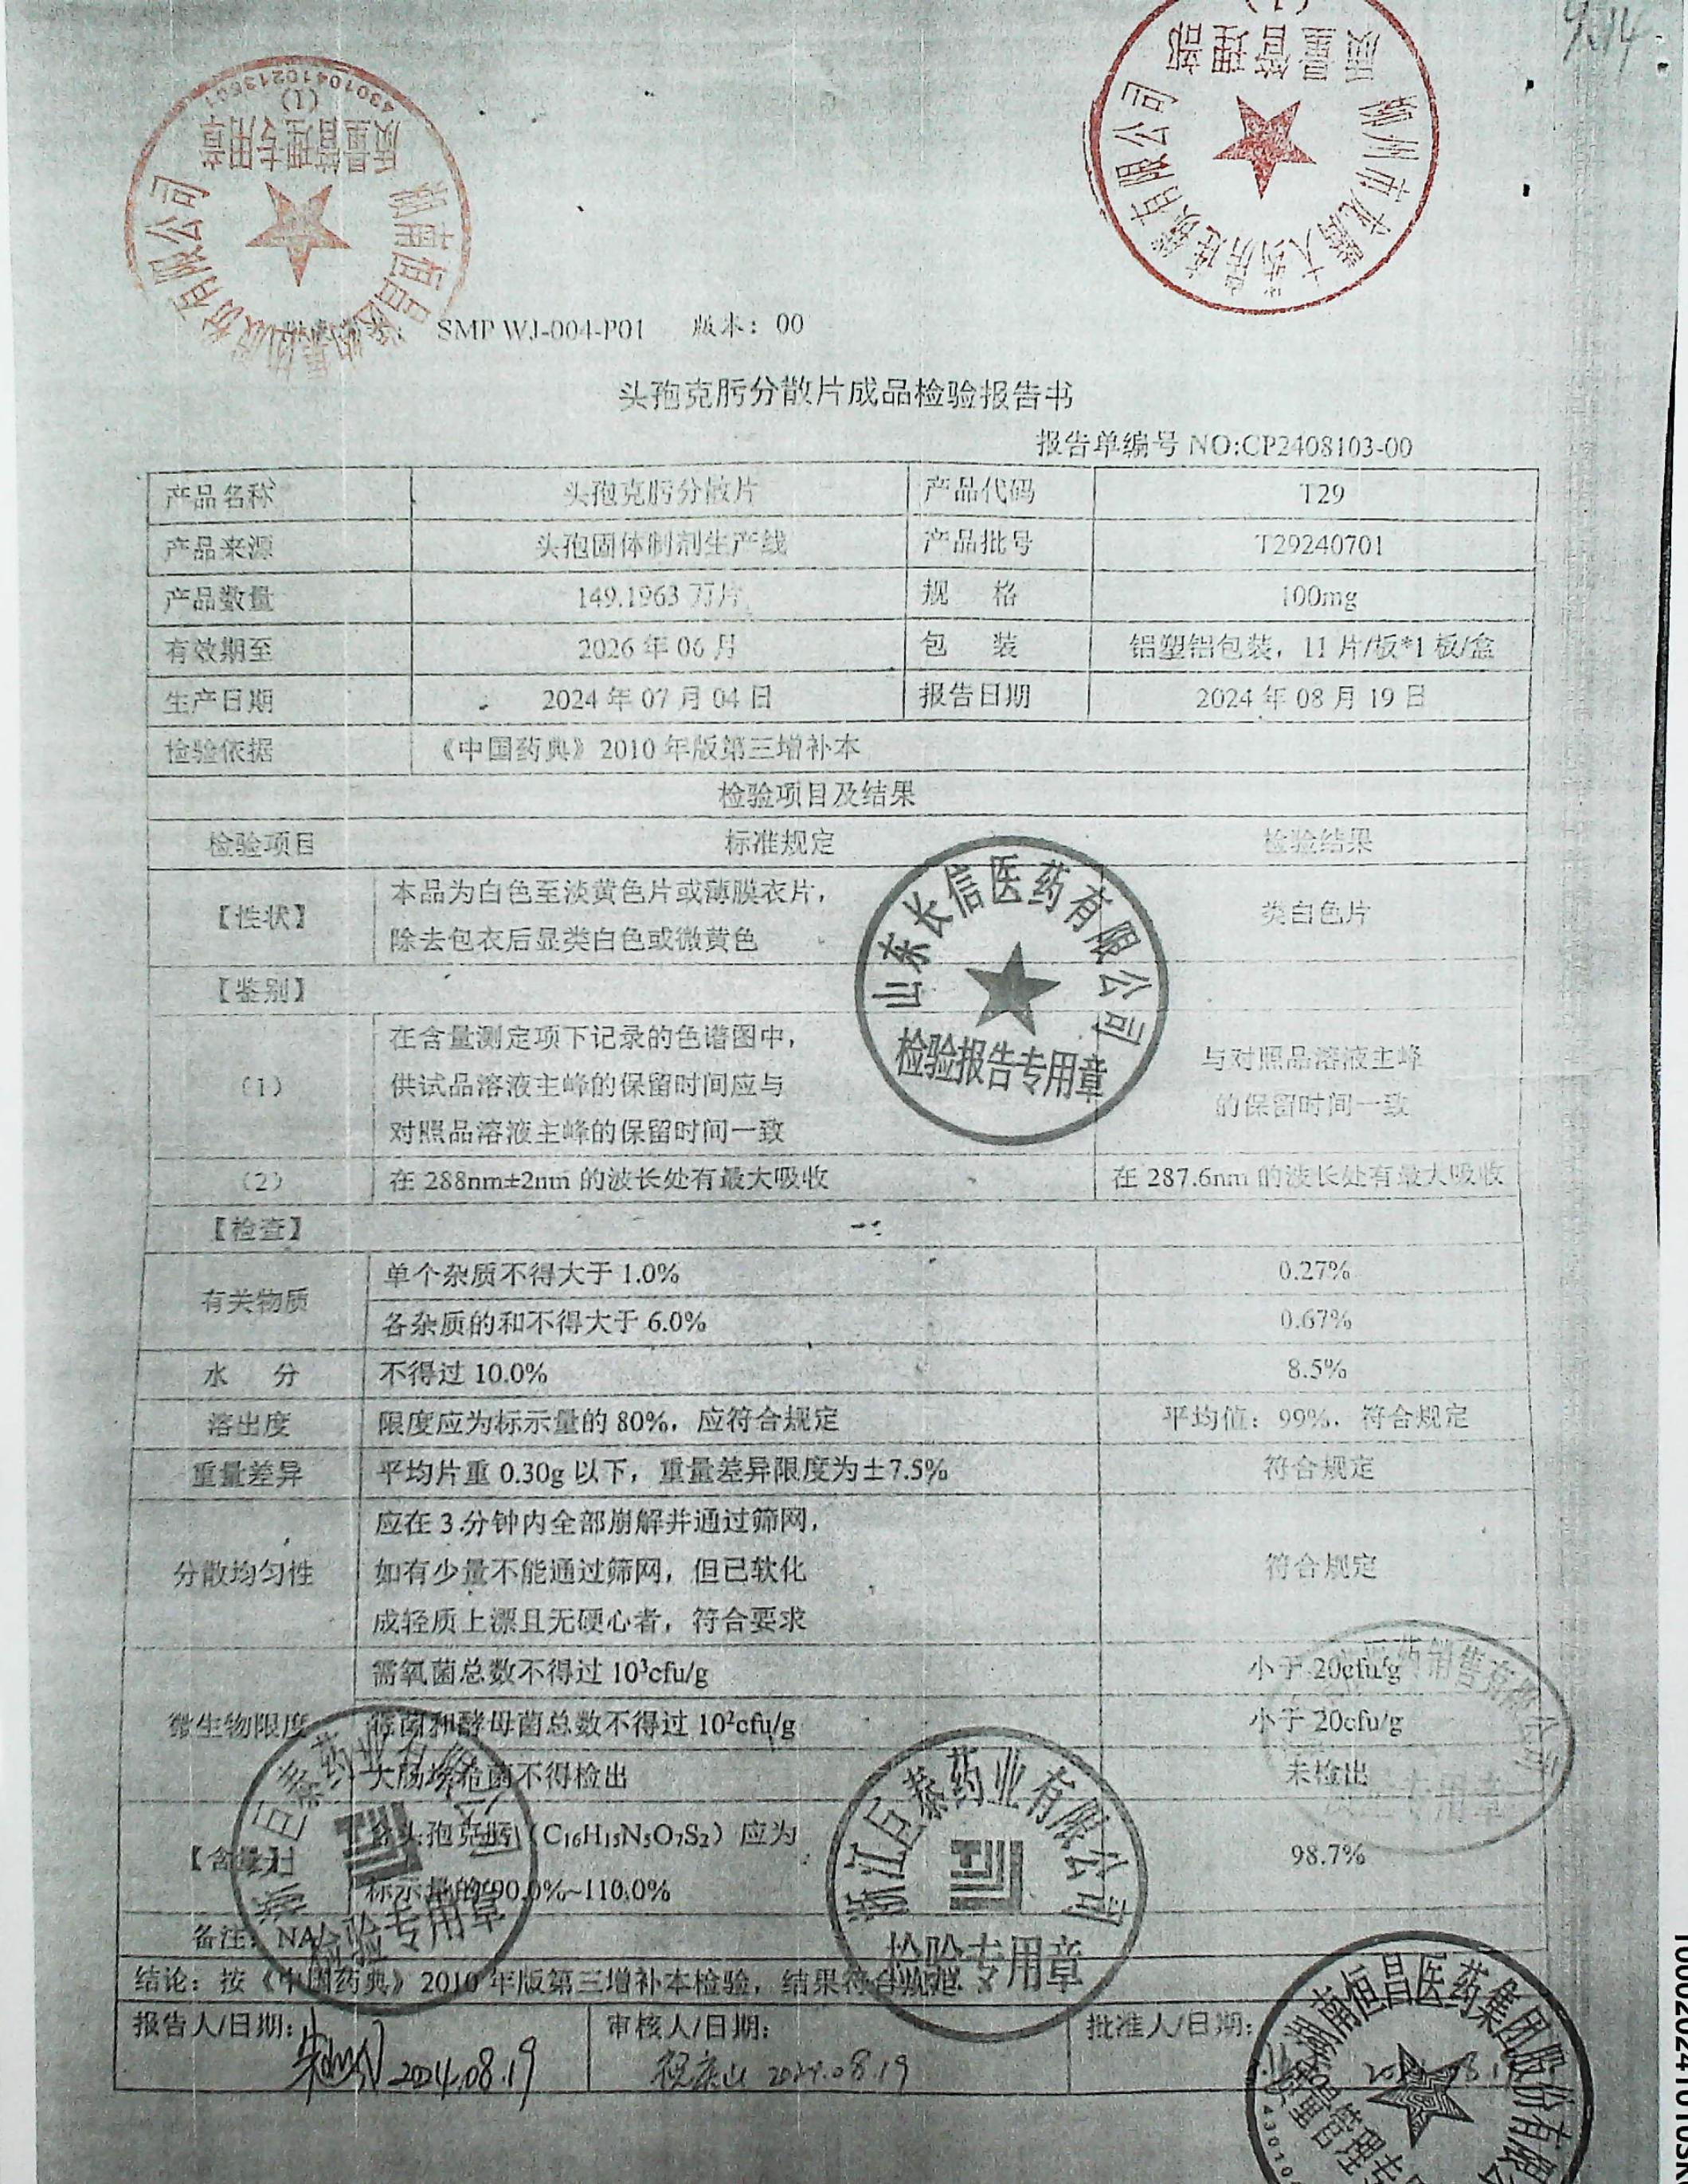 9.14
4301041021350
(1)
质量管理专用章
湖南恒昌医药集团股份有限公司
(1)
质量管理部
大药房连锁有限公司
SMP WJ-004-P01 版本：00
头孢克肟分散片成品检验报告书
报告单编号 NO:CP2408103-00
产品名称 头孢克肟分散片 产品代码 T29
产品来源 头孢固体制剂生产线 产品批号 T29240701
产品数量 149.1963 万片 规 格 100mg
有效期至 2026 年 06 月 包 装 铝塑铝包装，11 片/板*1 板/盒
生产日期 2024 年 07 月 04 日 报告日期 2024 年 08 月 19 日
检验依据 《中国药典》2010 年版第三增补本
检验项目及结果
检验项目 标准规定 检验结果
【性状】 本品为白色至淡黄色片或薄膜衣片，
除去包衣后显类白色或微黄色 类白色片
山东长信医药有限公司
检验报告专用章
【鉴别】
（1） 在含量测定项下记录的色谱图中，
供试品溶液主峰的保留时间应与
对照品溶液主峰的保留时间一致
与对照品溶液主峰
的保留时间一致
（2） 在 288nm±2nm 的波长处有最大吸收 在 287.6nm 的波长处有最大吸收
【检查】
有关物质 单个杂质不得大于 1.0% 0.27%
各杂质的和不得大于 6.0% 0.67%
水 分 不得过 10.0% 8.5%
溶出度 限度应为标示量的 80%，应符合规定 平均值：99%，符合规定
重量差异 平均片重 0.30g 以下，重量差异限度为±7.5% 符合规定
分散均匀性 应在 3 分钟内全部崩解并通过筛网，
如有少量不能通过筛网，但已软化
成轻质上漂且无硬心者，符合要求
符合规定
微生物限度 需氧菌总数不得过 10³cfu/g 小于 20cfu/g
霉菌和酵母菌总数不得过 10²cfu/g 小于 20cfu/g
大肠埃希菌不得检出 未检出
药销售有限公司
专用章
【含量】 含头孢克肟（C₁₆H₁₅N₅O₇S₂）应为
标示量的 90.0%~110.0% 98.7%
浙江巨泰药业有限公司
检验专用章
浙江巨泰药业有限公司
检验专用章
备注：NA
结论：按《中国药典》2010 年版第三增补本检验，结果符合规定
报告人/日期： 2024.08.19 审核人/日期： 2024.08.19 批准人/日期：
湖南恒昌医药集团股份有限
质量管理专